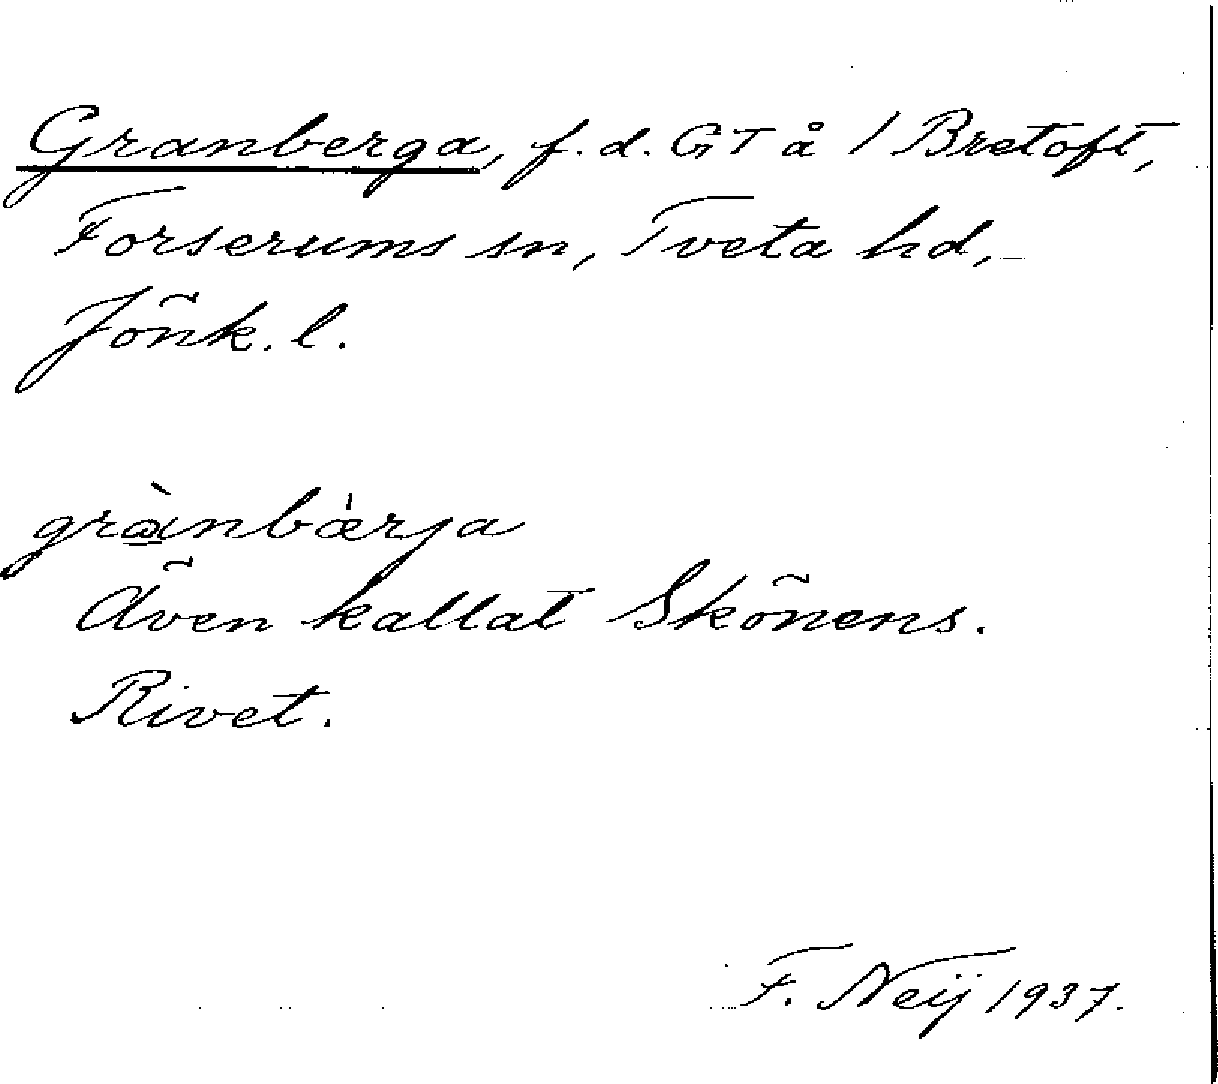 Granberga, f. d. GT å 1 Bretoft,
Forserums sn, Tveta hd,
Jönk. l.
grànbæ̀rja
Även kallat Skönens.
Rivet.
F. Neij 1937.